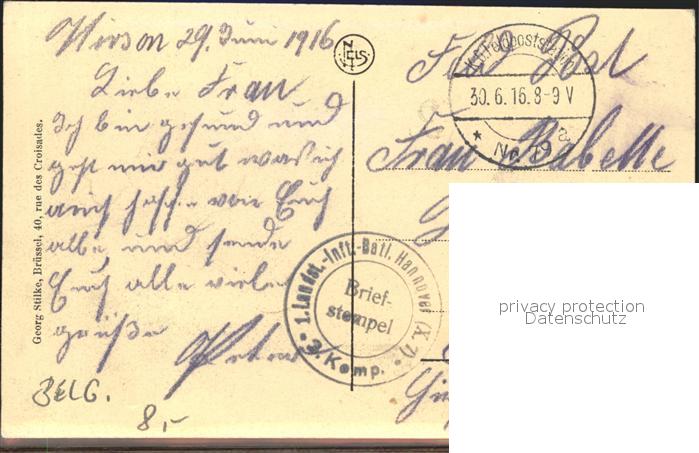 Hirson 29. Juni 1916
Liebe Frau
Ich bin gesund und
geht mir gut was ich
auch hoffe von Euch
alle, und sende
Euch alle vielen
grüße
Peter
BELG.
8,-
Georg Stilke, Brüssel, 40, rue des Croisades.
NELS
Feld Post
K.D. Feldpoststation
30.6.16.8-9 V
* Nr. 19 a
Frau Babette
1. Landst.-Inft.-Batl. Hannover (X. 7)
Brief-
stempel
3. Komp.
privacy protection
Datenschutz